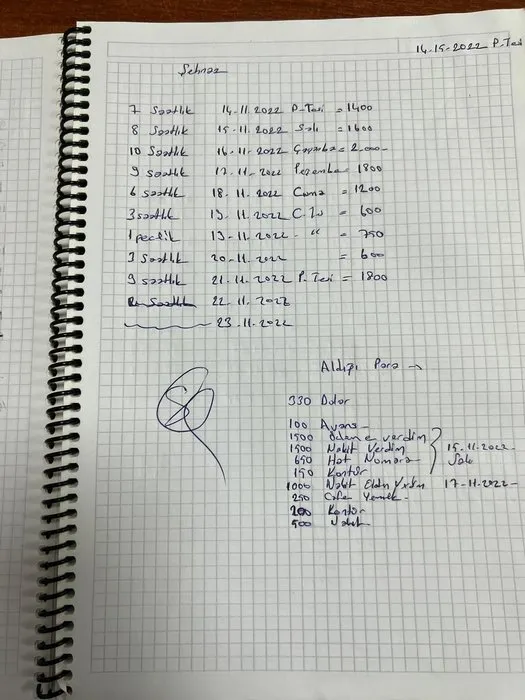 14-15-2022 P.Tesi
Sehnaz
7 Saatlik 14-11-2022 P-Tesi = 1400
8 Saatlik 15-11-2022 Salı = 1600
10 Saatlik 16-11-2022 Çaşamba = 2.000-
9 saatlik 17-11-2022 Perşembe = 1800
6 saatlik 18-11-2022 Cuma = 1200
3 saatlik 19-11-2022 C.Tesi = 600
1 19-11-2022 - " = 750
3 Saatlik 20-11-2022 = 600
9 saatlik 21-11-2022 P.Tesi = 1800
Saatlik 22-11-2022
23-11-2022
Aldığı Para
330 Dolar
100 Avans
1500 ödeme verdim
1500 Nakit Verdim 15-11-2022-
650 Hat Nomara Salı
150 Kontör
1000 Nakit Elden Verdim 17-11-2022-
250 Cafe Yemek-
200 Kontör
500 Nakit